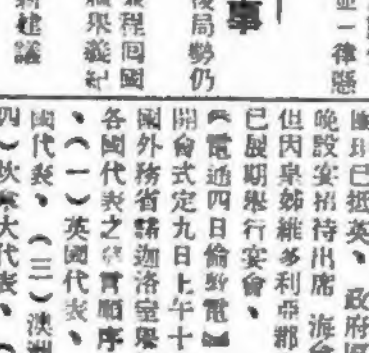 並一律懸
事
後局勢仍
兼程回國
職舉義紀
新建議
國已抵英、政府
晚設宴招待出席海
但因皇姊維多利亞郡
已展期舉行宴會、
電通四日倫敦電
開會式定九日上午十
國外務省諾迦洛室舉
各國代表之發言順序
、(一)英國代表、
國代表、(三)澳洲
四)坎拿大代表、